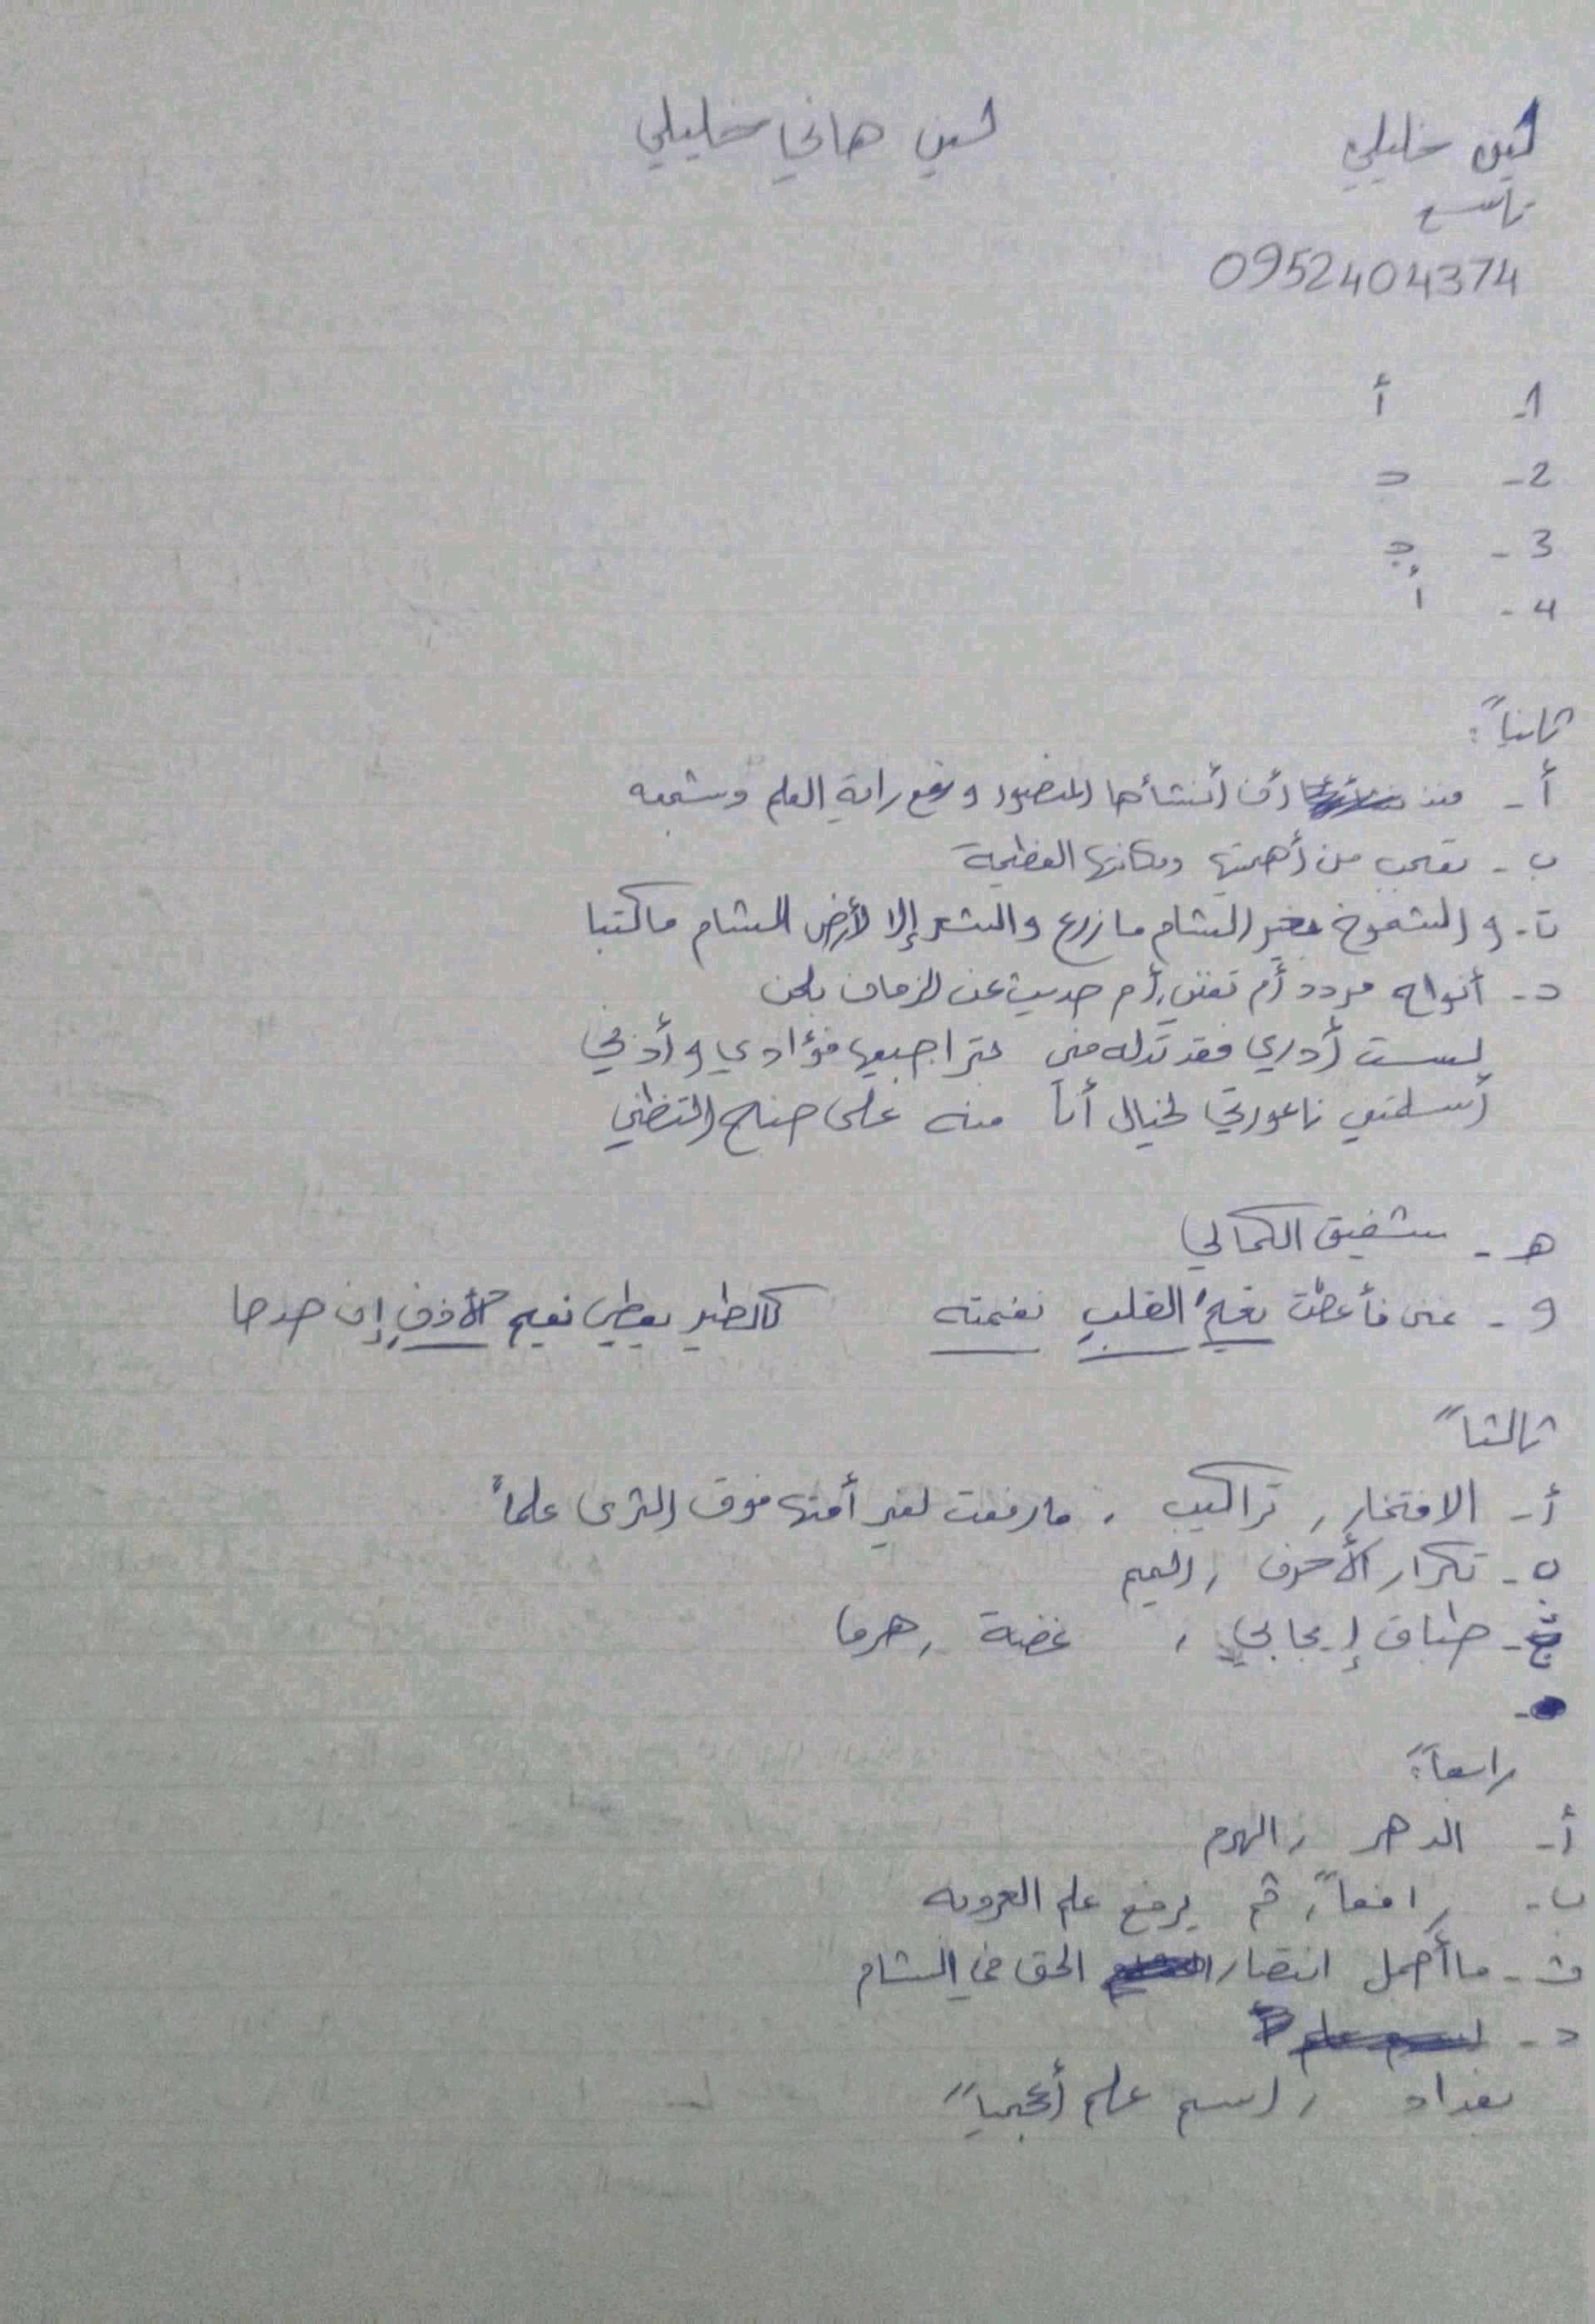 لين خليلي
لين هاني خليلي
تاسع
0952404374
1- أ
2- د
3- ج
4- أ
ثانياً:
أ- منذ أن أنشأها المنصور ورفع راية العلم وشعبه
ب- تعجب من أهميتها ومكانتها العظيمة
ت- و الشموخ بغير الشام ما زرع والشعر إلا لأرض الشام ما كتبا
د- أنواح مردد أم تغني أم حديث عن الزمان بلحن
لست أدري فقد تدله مني عند اجبعها فؤادي و أذني
أسلمتني ناعورتي لخيال أنا منه على جناح التظني
هـ- شفيق الكمالي
و- غنى فأعطت نعيم القلب نغمته كالطير يعطي نعيم الأذن إن صدحا
ثالثاً
أ- الافتخار, تراكيب, ما رفعت لغير أمتها فوق الثرى علماً
ب- تكرار الأحرف, الميم
ج- طباق إيجابي, غضة, هرما
-
رابعاً:
أ- الدهر, الهرم
ب- رافعاً, ثم يرفع علم العروبه
ت- ما أجمل انتصار الحق في الشام
د-
بغداد, اسم علم أعجمياً